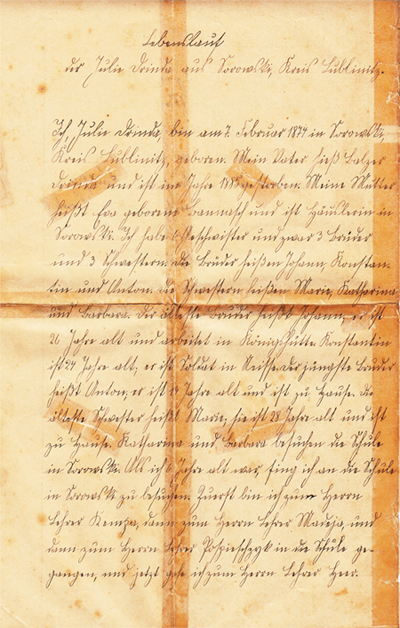 Lebenslauf
der Julie Drinda aus Sorowski, Kreis Lublinitz.
Ich, Julie Drinda, bin am 7. Februar 1874 in Sorowski,
Kreis Lublinitz, geboren. Mein Vater hieß Balzer
Drinda und ist im Jahre gestorben. Meine Mutter
heißt geborene und ist Häuslerin in
Sorowski. Ich habe 6 Geschwister und zwar 3 Brüder
und 3 Schwestern. Die Brüder heißen Johann, Konstan-
tin und Anton. Die Schwestern heißen Marie, Katharina
und Barbara. Der älteste Bruder heißt Johann, er ist
26 Jahre alt und arbeitet in Königshütte. Konstantin
ist 24 Jahre alt, er ist Soldat in Neisse. Der jüngste Bruder
heißt Anton, er ist Jahre alt und ist zu Hause. Die
älteste Schwester heißt Marie, sie ist 28 Jahre alt und ist
zu Hause. Katharina und Barbara besuchen die Schule
in Sorowski. Als ich 6 Jahre alt war, fing ich an die Schule
in Sorowski zu besuchen. Zuerst bin ich zum Herrn
Lehrer Kempa, dann zum Herrn Lehrer und
dann zum Herrn Lehrer Pospieschczyk in die Schule ge-
gangen, und jetzt gehe ich zum Herrn Lehrer